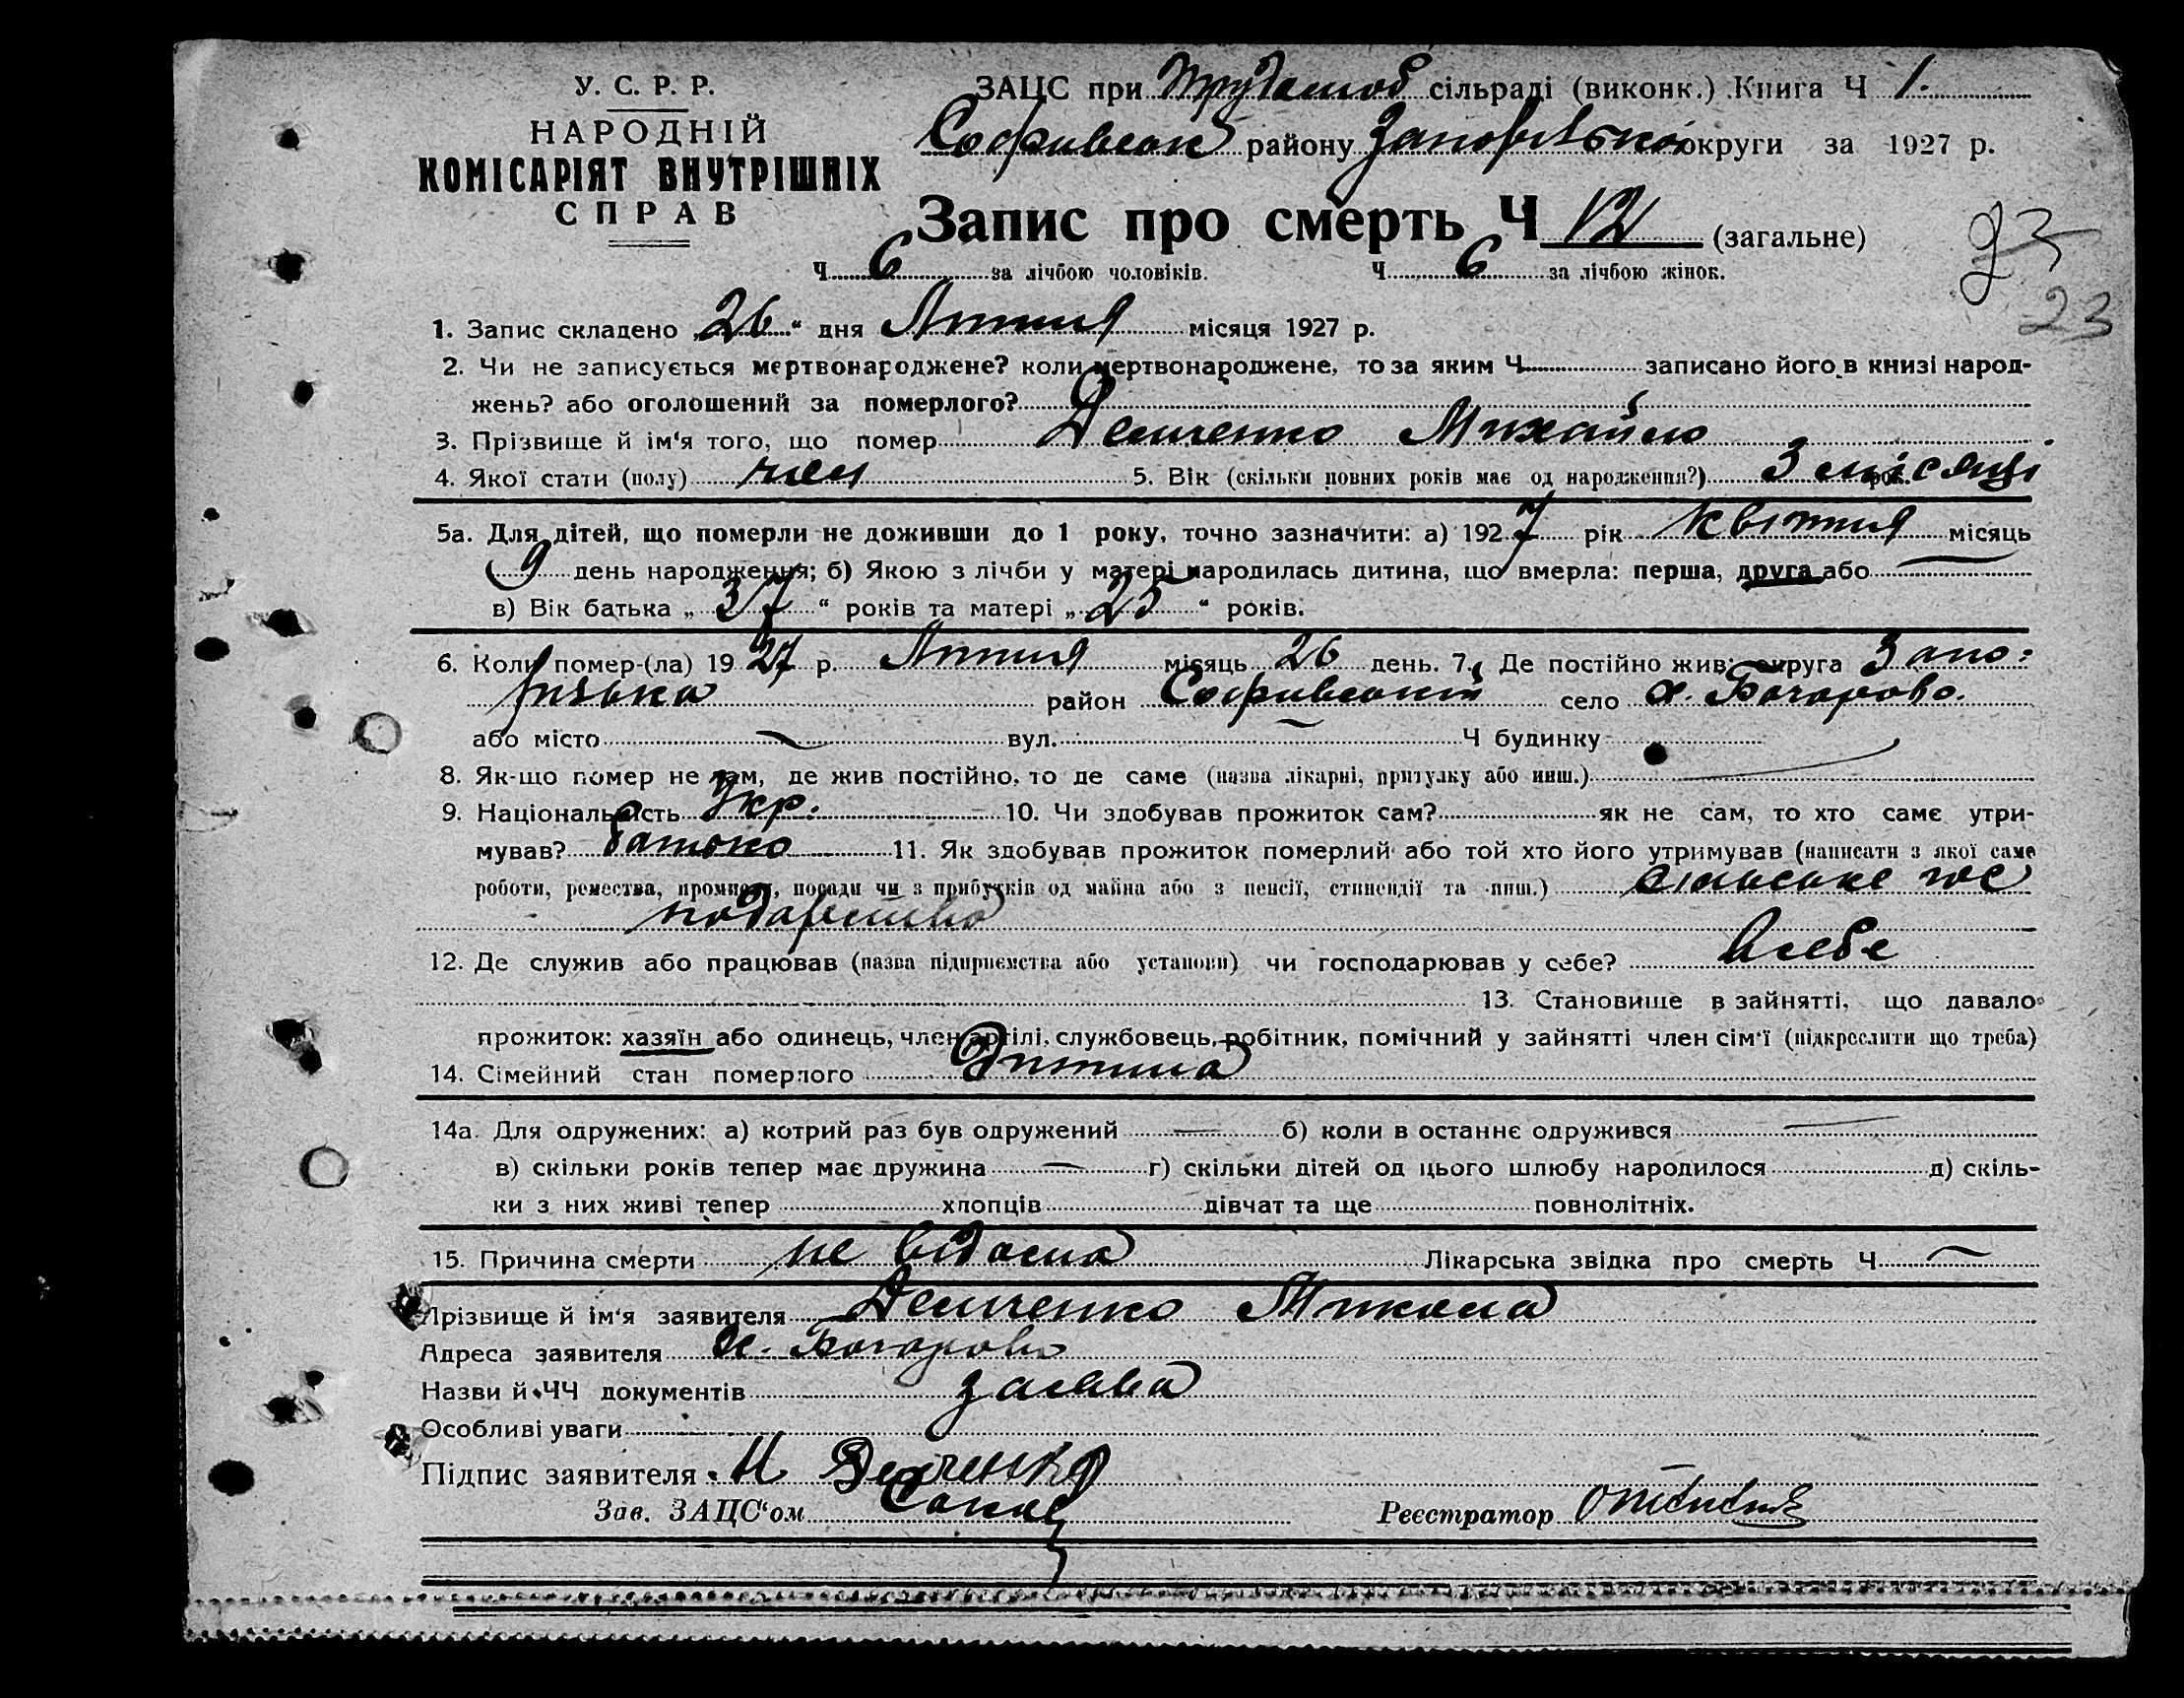 У. С. Р. Р.
НАРОДНІЙ
КОМІСАРІЯТ ВНУТРІШНІХ
СПРАВ
ЗАЦС при сільраді (виконк.) Книга Ч 1.
Софиевськ району Запорізької округи за 1927 р.
Запис про смерть Ч 12 (загальне)
Ч 6 за лічбою чоловіків. Ч 6 за лічбою жінок.
23
23
1. Запис складено „26“ дня Липния місяця 1927 р.
2. Чи не записується мертвонароджене? коли мертвонароджене, то за яким Ч записано його в книзі народ-
жень? або оголошений за померлого?
3. Прізвище й ім‘я того, що помер Демченко Михайло
4. Якої стати (полу) чол 5. Вік (скільки повних років має од народження?) 3 місяці рок.
5а. Для дітей, що померли не доживши до 1 року, точно зазначити: а) 1927 рік Квітния місяць
9 день народження; б) Якою з лічби у матері народилась дитина, що вмерла: перша, друга або —
в) Вік батька „37“ років та матері „25“ років.
6. Коли помер-(ла) 1927 р. Липния місяць 26 день. 7. Де постійно жив: округа Запо-
різька район Софиевський село х. Бочарово.
або місто — вул. — Ч будинку
8. Як-що помер не там, де жив постійно, то де саме (назва лікарні, притулку або инш.)
9. Національність Укр. 10. Чи здобував прожиток сам? як не сам, то хто саме утри-
мував? батько 11. Як здобував прожиток померлий або той хто його утримував (написати з якої саме
роботи, ремества, промислу, посади чи з прибутків од майна або з пенсії, стипендії та инш.) сільське гос
подарство
12. Де служив або працював (назва підприємства або установи) чи господарював у себе? в себе
13. Становище в зайнятті, що давало
прожиток: хазяїн або одинець, член артілі, службовець, робітник, помічний у зайнятті член сім‘ї (підкреслити що треба)
14. Сімейний стан померлого Дитина
14а. Для одружених: а) котрий раз був одружений — б) коли в останнє одружився —
в) скільки років тепер має дружина — г) скільки дітей од цього шлюбу народилося д) скіль-
ки з них живі тепер хлопців дівчат та ще повнолітніх.
15. Причина смерти не відома Лікарська звідка про смерть Ч —
Прізвище й ім‘я заявителя Демченко Микола
Адреса заявителя х. Бочарово
Назви й ЧЧ документів заява
Особливі уваги
Підпис заявителя Н Демченко
Зав. ЗАЦС‘ом
Реєстратор